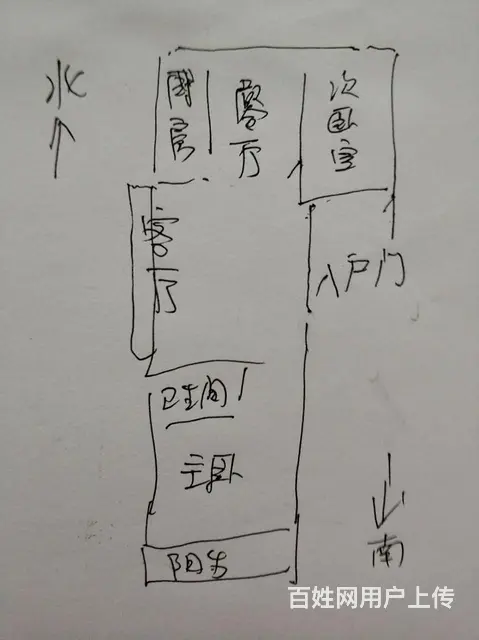 北
厨房
餐厅
次卧室
客厅
入户门
卫生间
主卧
阳台
南
百姓网用户上传